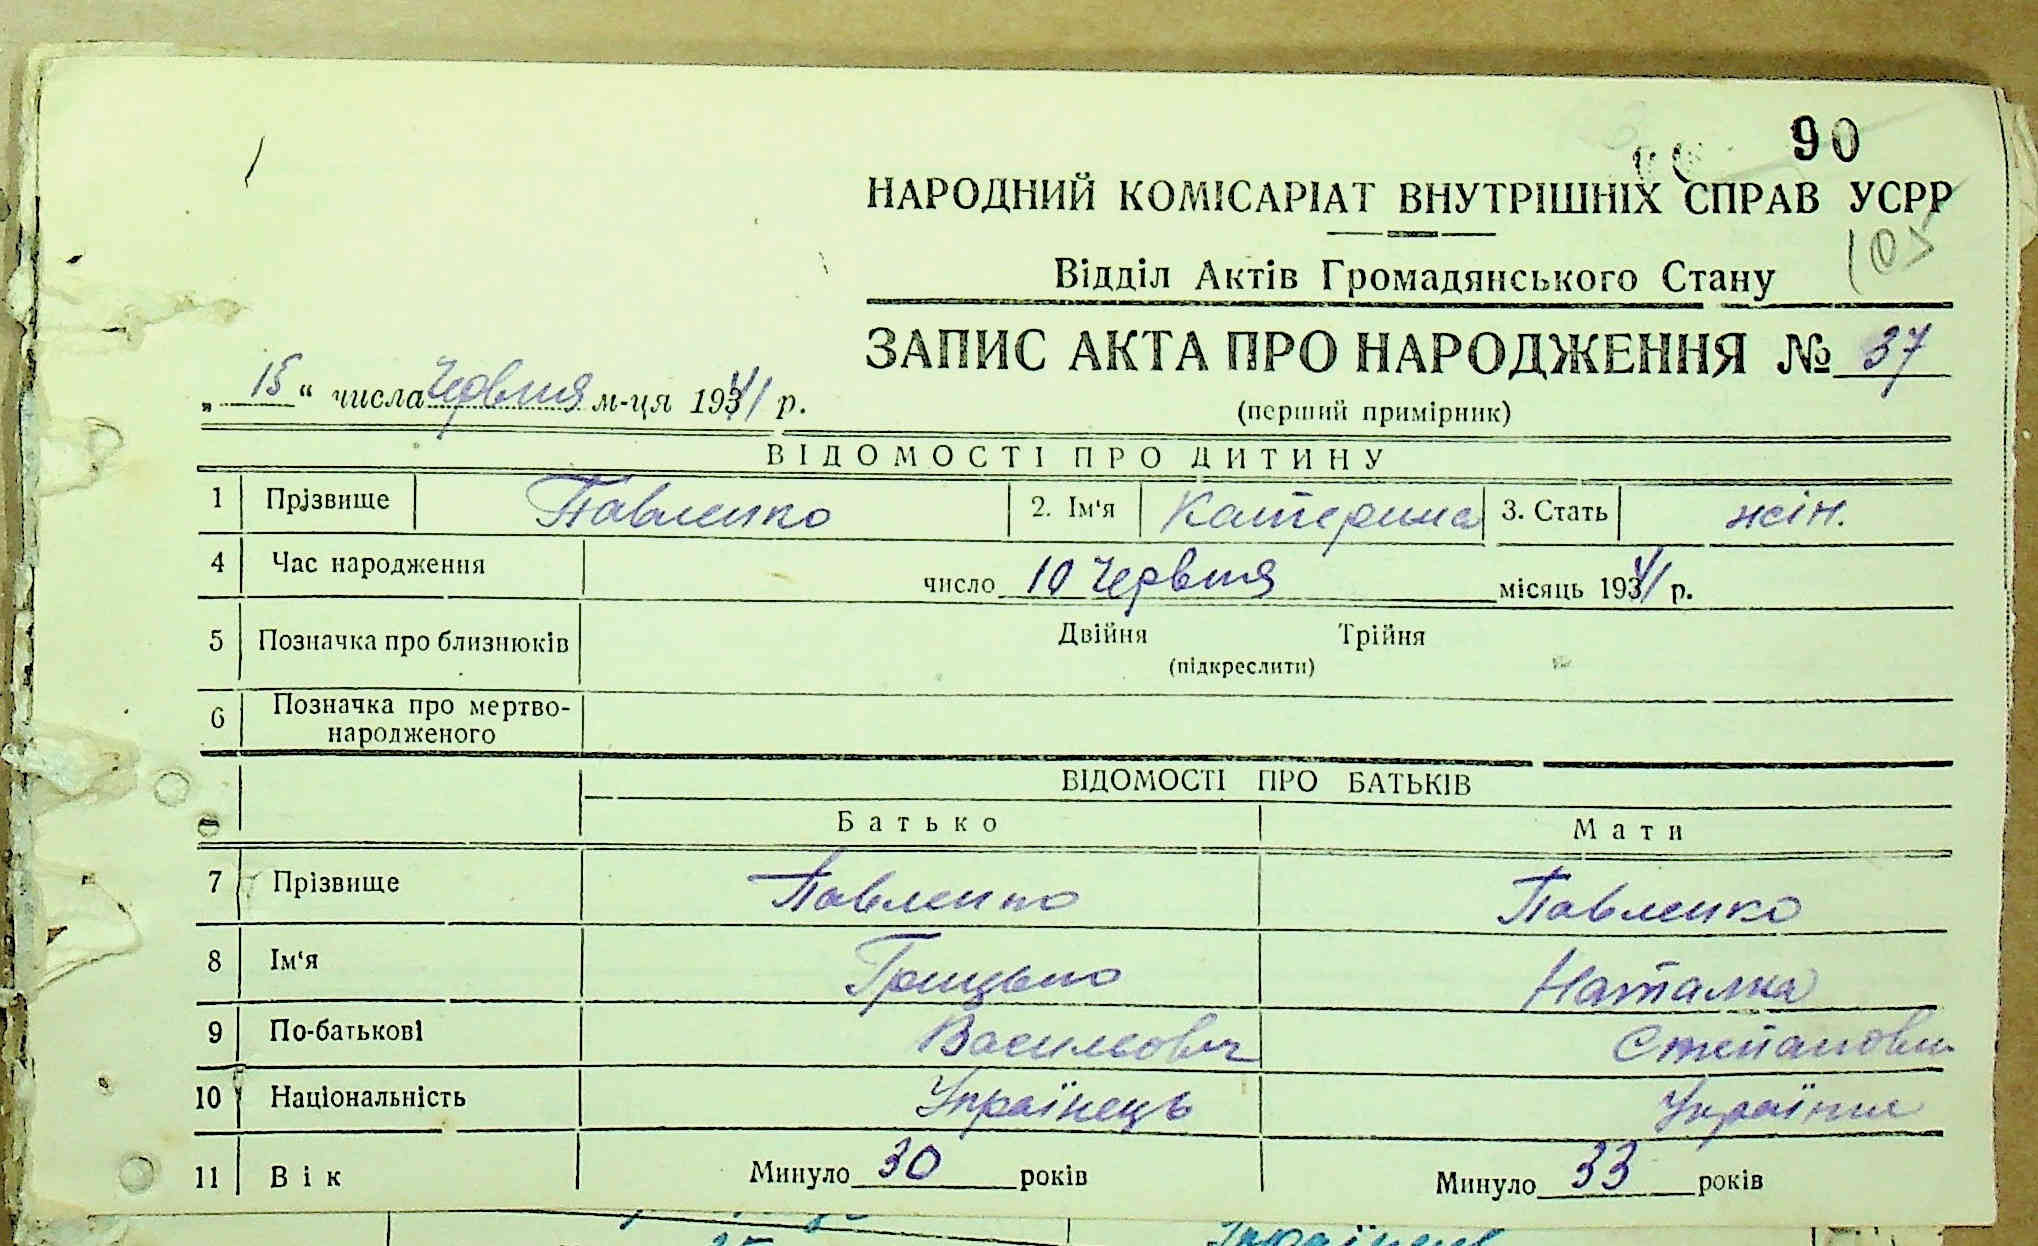 90
НАРОДНИЙ КОМІСАРІАТ ВНУТРІШНІХ СПРАВ УСРР
105
Відділ Актів Громадянського Стану
ЗАПИС АКТА ПРО НАРОДЖЕННЯ № 37
„ 15 “ числа Червня м-ця 1941 р.
(перший примірник)
ВІДОМОСТІ ПРО ДИТИНУ
1 Прізвище Павленко 2. Ім'я Катерина 3. Стать жін.
4 Час народження число 10 Червня місяць 1941 р.
5 Позначка про близнюків Двійня Трійня
(підкреслити)
6 Позначка про мертво-
народженого
ВІДОМОСТІ ПРО БАТЬКІВ
Батько Мати
7 Прізвище Павленко Павленко
8 Ім'я Грицько Наталка
9 По-батькові Васильович Степановн
10 Національність Українець Українка
11 Вік Минуло 30 років Минуло 33 років